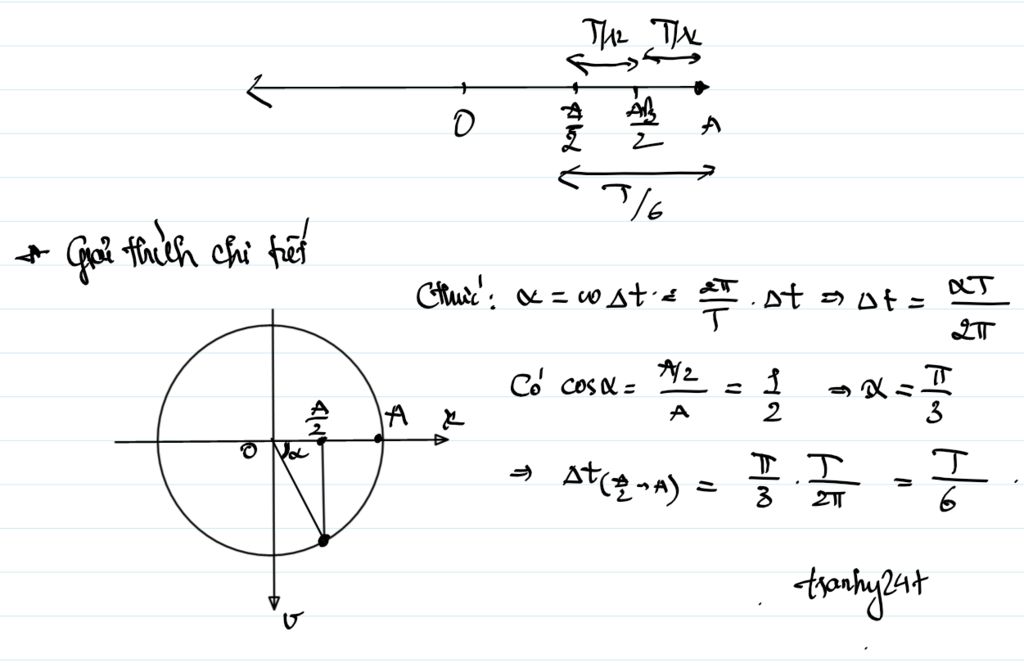 T/12 T/12
O A/2 A√3/2 A
T/6
* Giải thích chi tiết
Cthức: α = ω Δt = 2π/T . Δt ⇒ Δt = αT/2π
Có cosα = A/2/A = 1/2 ⇒ α = π/3
⇒ Δt(A/2→A) = π/3 . T/2π = T/6 .
O α A/2 A x
v
tranhy24t